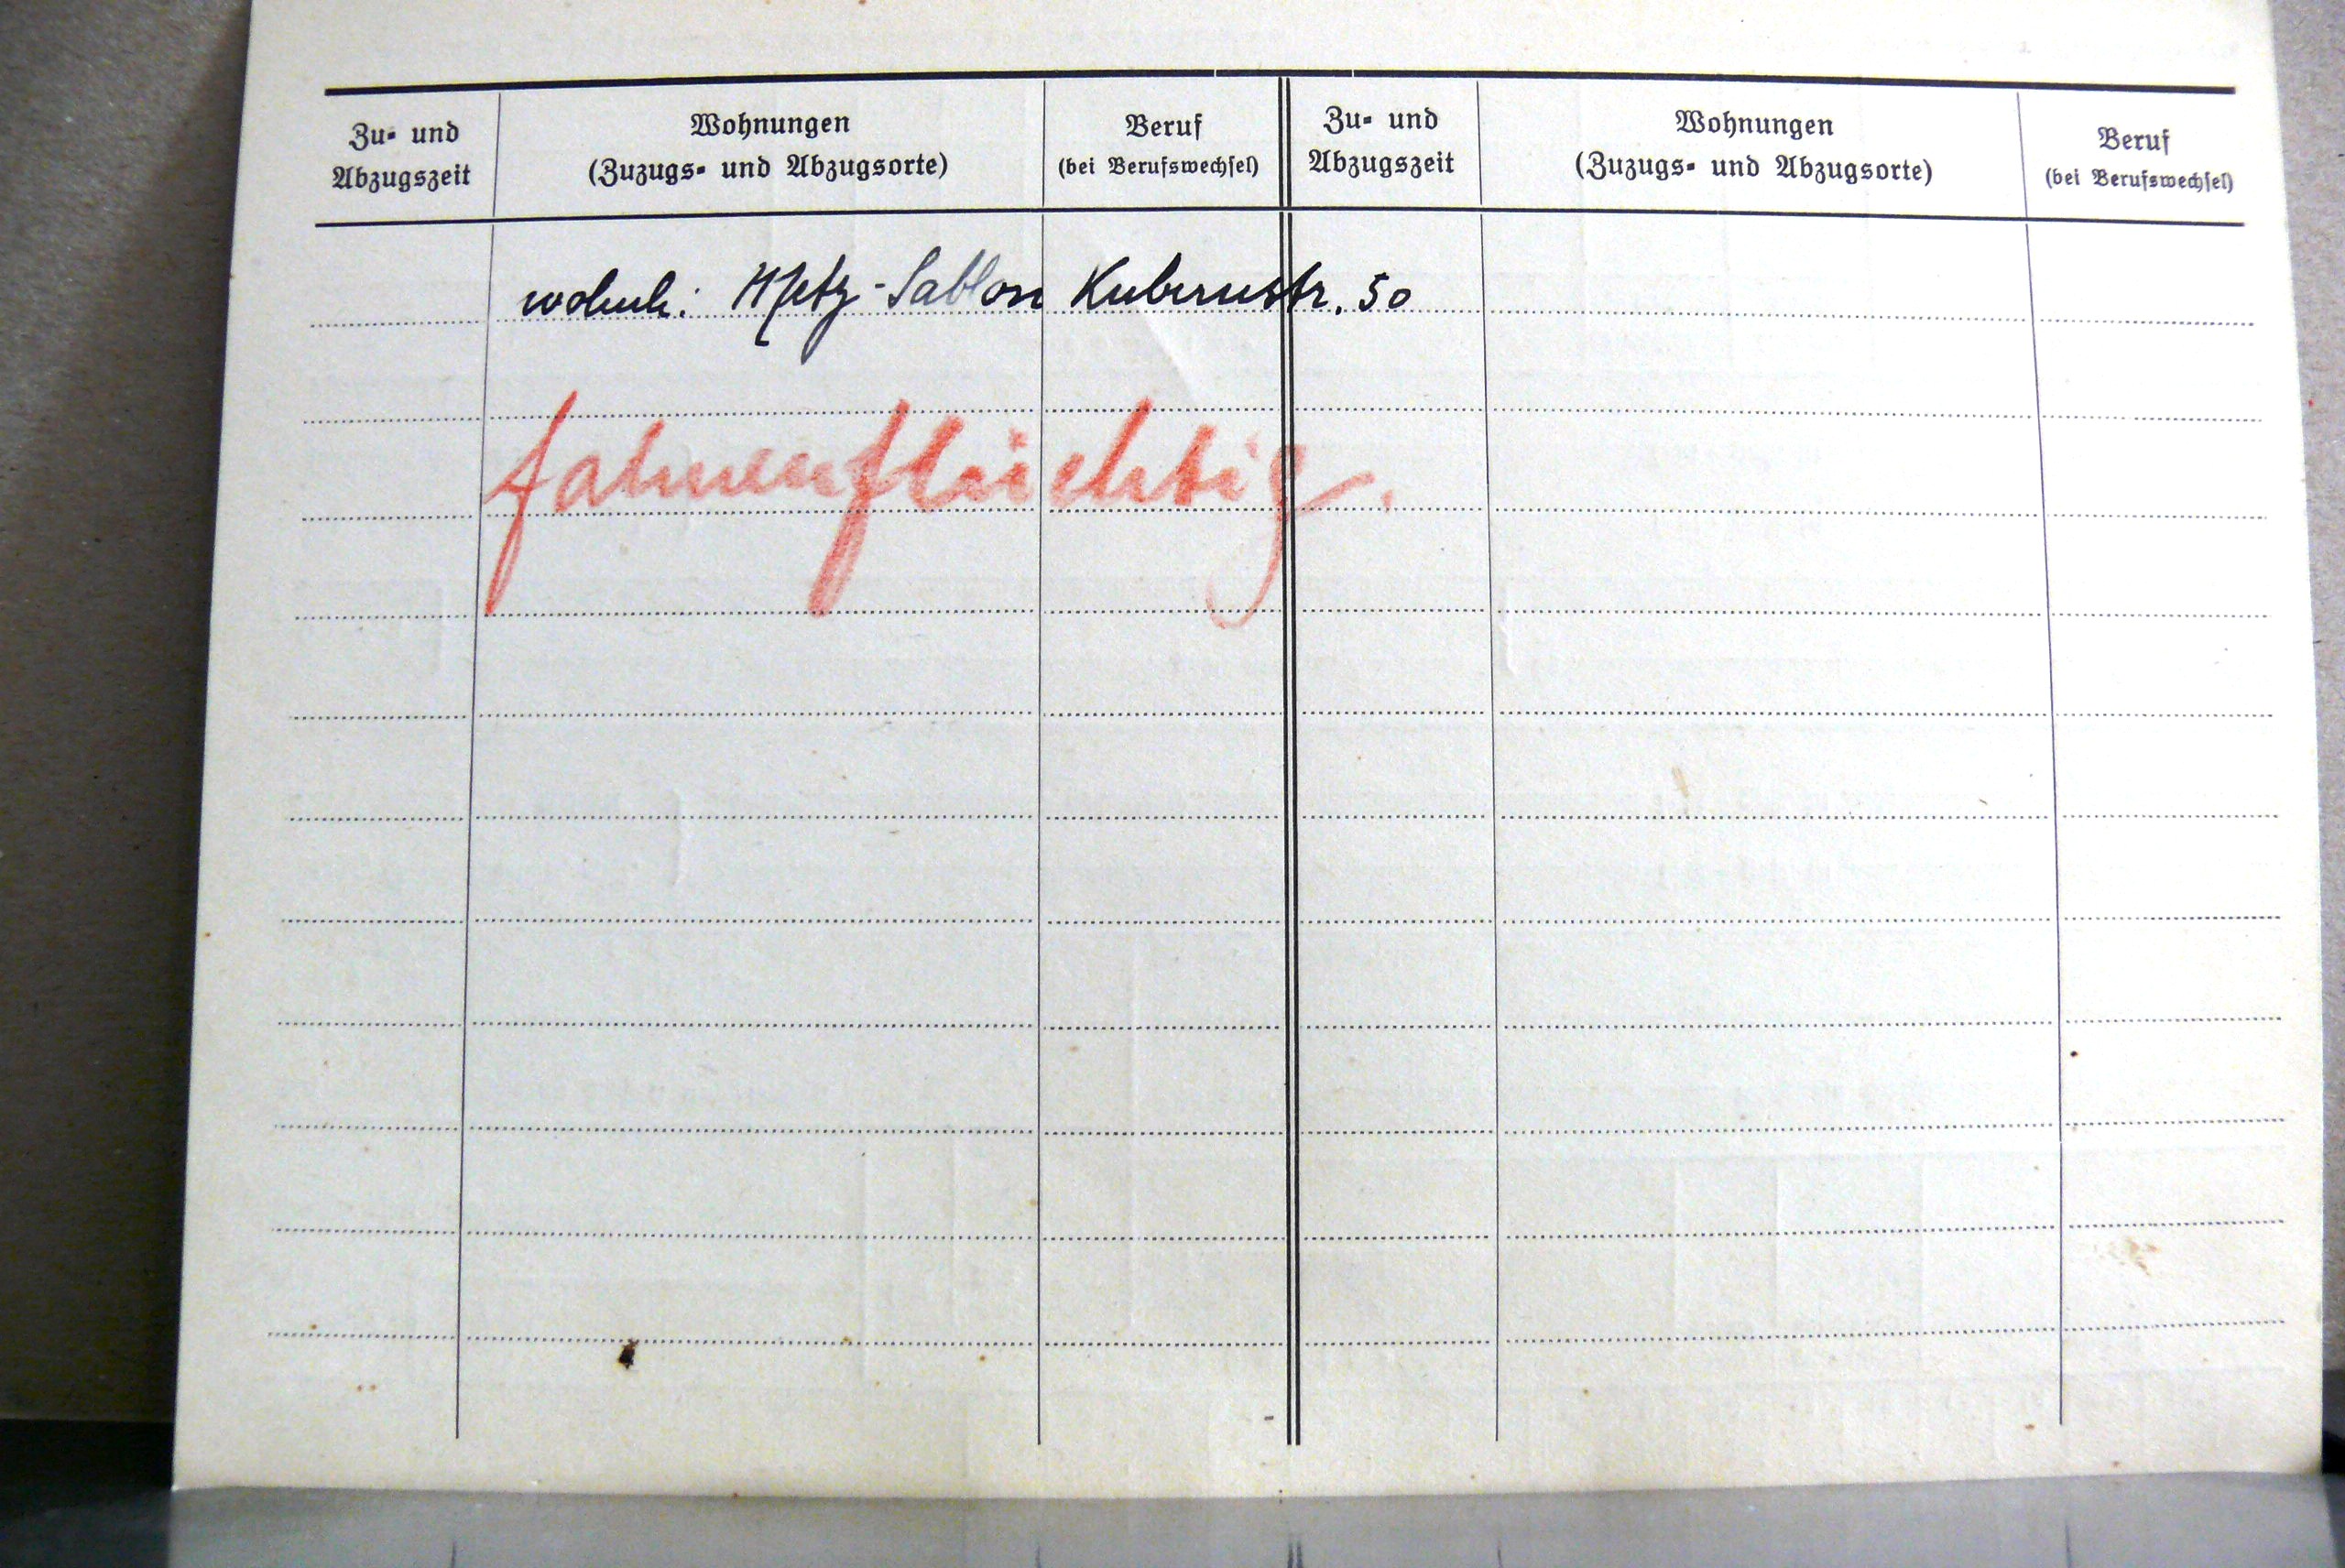 Zu- und Abzugszeit
Wohnungen (Zuzugs- und Abzugsorte)
Beruf (bei Berufswechsel)
Zu- und Abzugszeit
Wohnungen (Zuzugs- und Abzugsorte)
Beruf (bei Berufswechsel)
wohnh: Metz-Sablon 50
fahnenflüchtig.